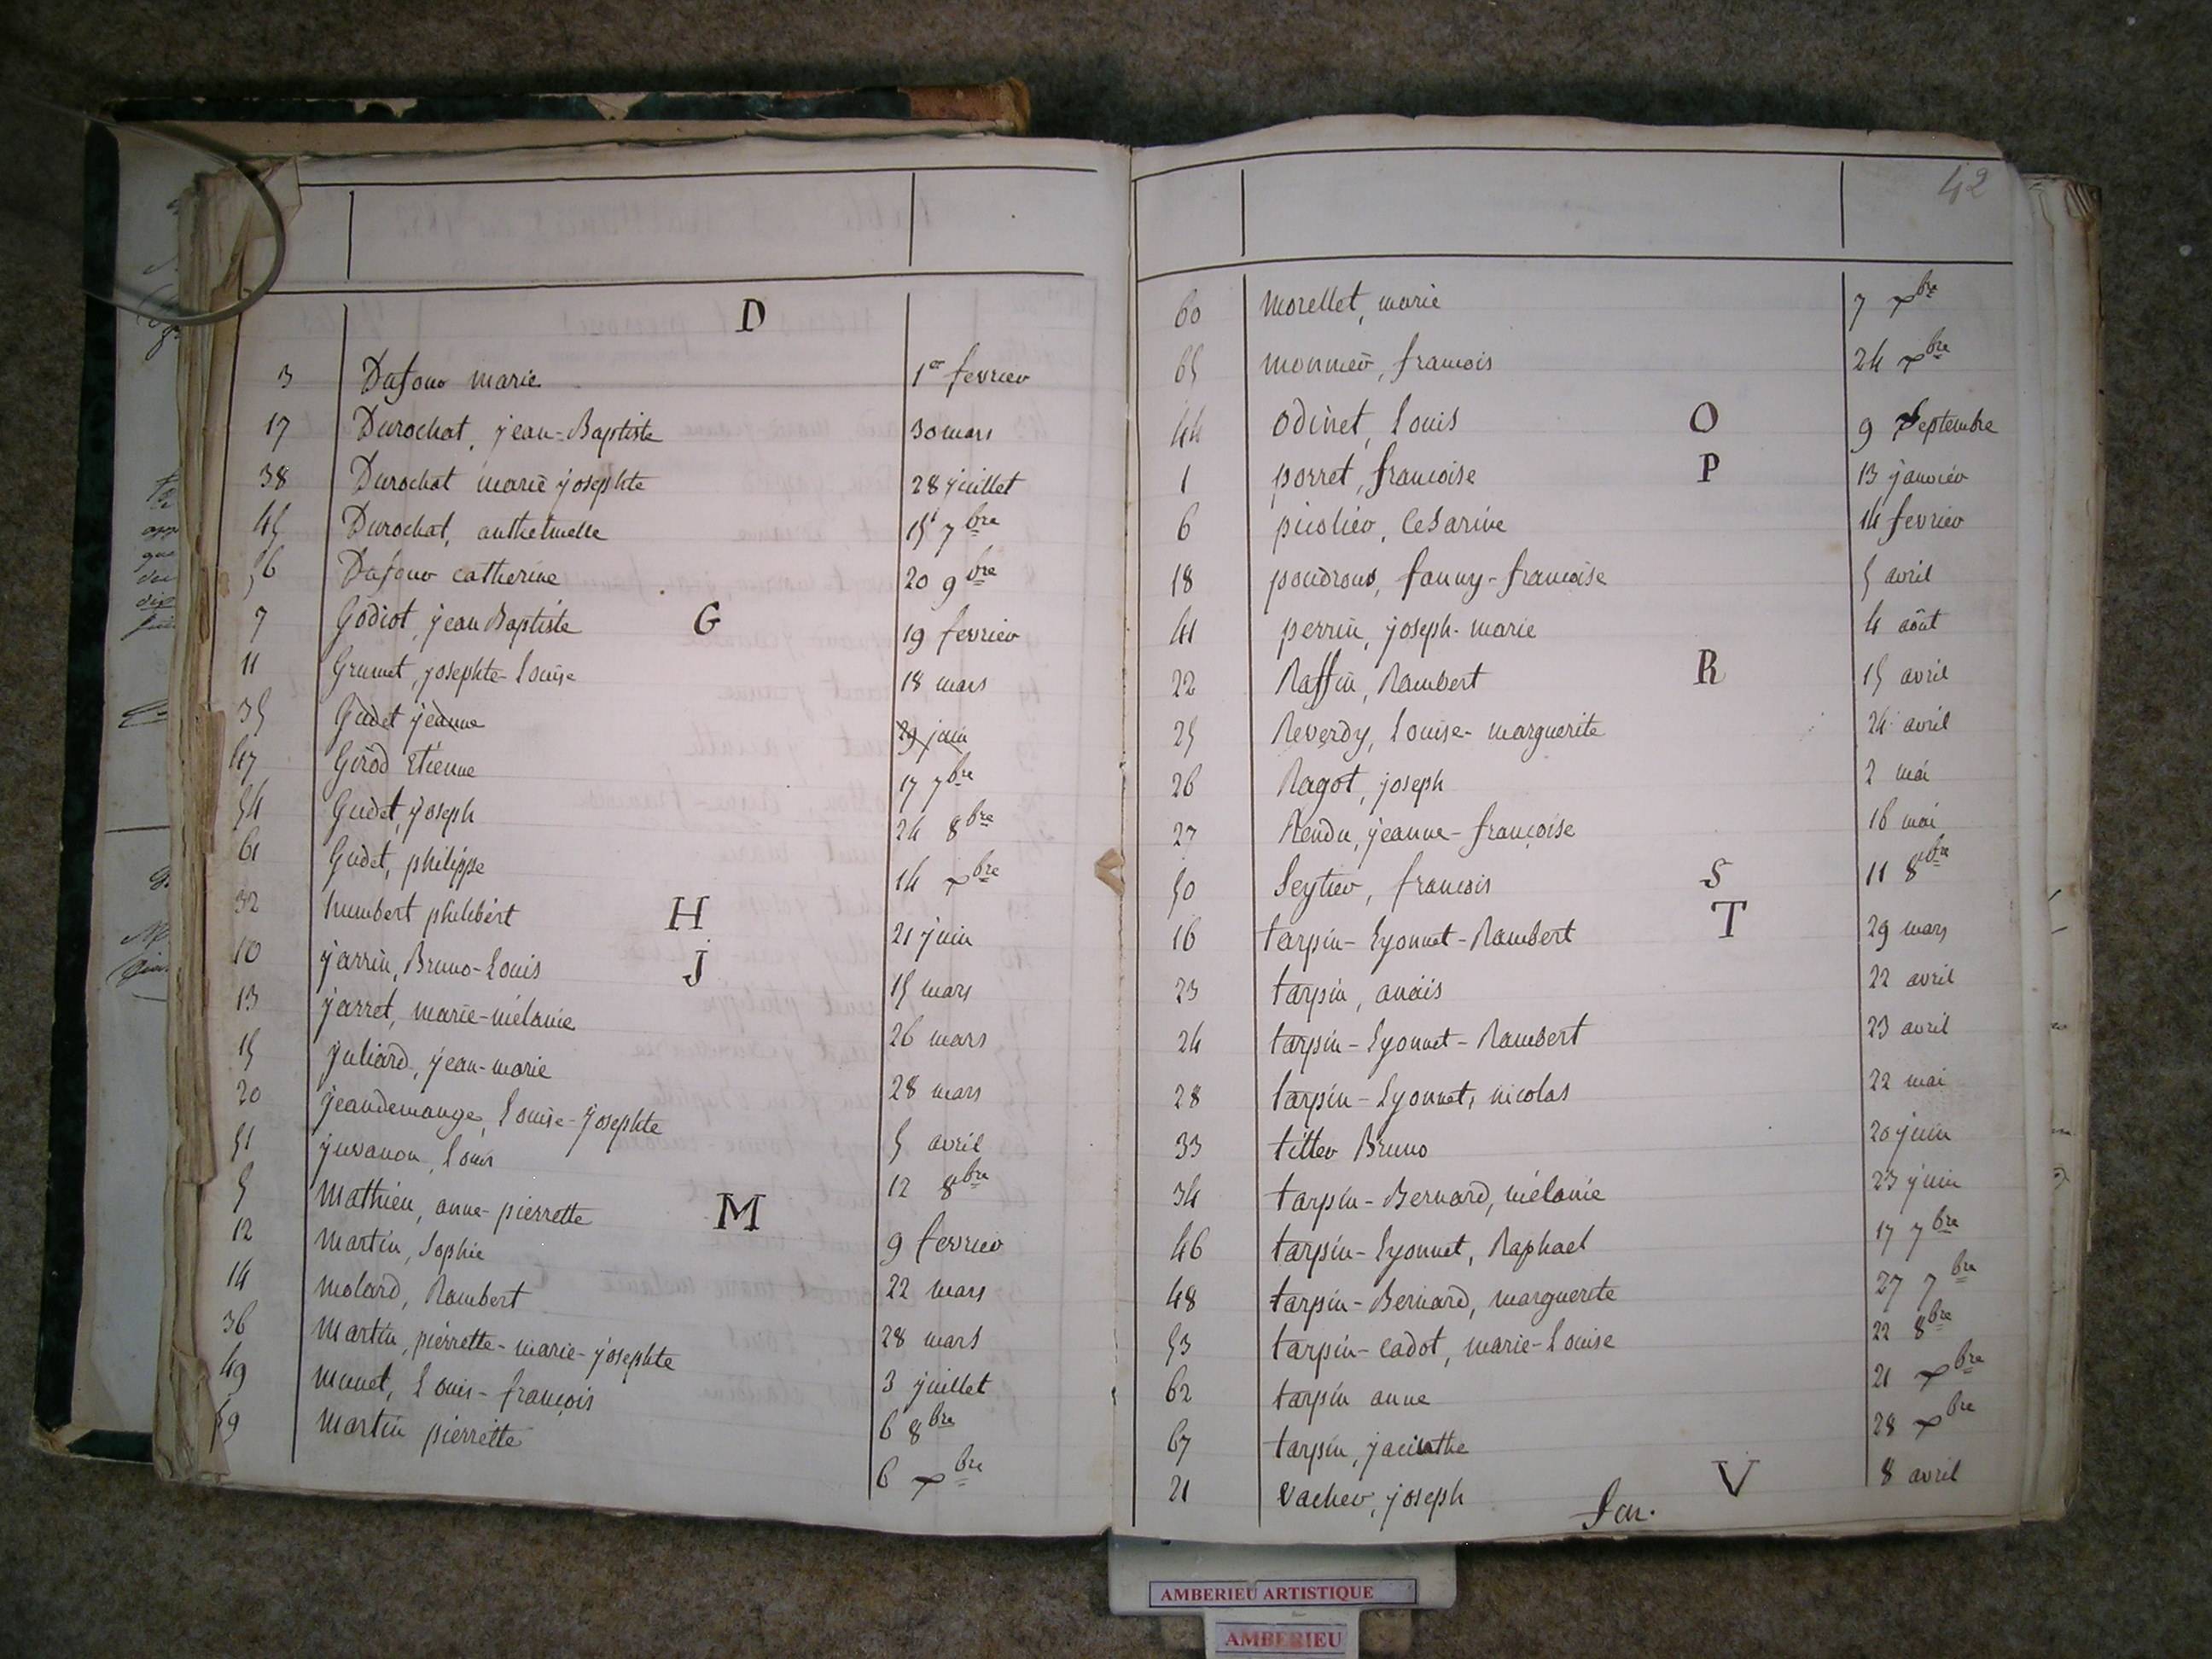 D
3 Dufour marie 1er fevrier
17 Durochat, jean-Baptiste 30 mars
38 Durochat marie josephte 28 juillet
45 Durochat, anthelmelle 15 7bre
56 Dufour catherine 20 9bre
7 Godiot, jean Baptiste G 19 fevrier
11 Grumet, josephte-Louise 18 mars
35 Gudet jeanne 29 juin
47 Girod Etienne 17 7bre
54 Gudet, joseph 24 8bre
61 Gudet, philippe 14 xbre
32 humbert philibert H 21 juin
10 jarrin, Bruno-Louis J 15 mars
13 jarret, marie-mélanie 26 mars
15 juliard, jean-marie 28 mars
20 jeandemange, Louise-josephte 5 avril
51 juvanon, Louis 12 8bre
5 Mathieu, anne-pierrette M 9 fevrier
12 Martin, Sophie 22 mars
14 Molard, Rambert 28 mars
36 Martin, pierrette-marie-josephte 3 juillet
49 Munet, Louis-françois 6 8bre
59 Martin pierrette 6 xbre
42
60 Morellet, marie 7 xbre
65 Monnier, francois 24 xbre
44 Odinet, Louis O 9 Septembre
1 porret, francoise P 13 janvier
6 picolier, Cesarine 14 fevrier
18 poudrous, fanny-francoise 5 avril
41 perrin, joseph-marie 4 aôut
22 Raffin, Rambert R 15 avril
25 Reverdy, Louise-marguerite 24 avril
26 Ragot, joseph 2 mai
27 Rendu, jeanne-françoise 16 mai
50 Seytier, francois S 11 8bre
16 tarpin-Lyonnet-Rambert T 29 mars
23 tarpin, anaïs 22 avril
24 tarpin-Lyonnet-Rambert 23 avril
28 tarpin-Lyonnet, nicolas 22 mai
33 titter Bruno 20 juin
34 tarpin-Bernard, mélanie 23 juin
46 tarpin-Lyonnet, Raphael 17 7bre
48 tarpin-Bernard, marguerite 27 7bre
53 tarpin-cadot, marie-Louise 22 8bre
62 tarpin anne 21 xbre
67 tarpin, jacinthe 28 xbre
21 Vacher, joseph V 8 avril
AMBERIEU ARTISTIQUE
AMBERIEU